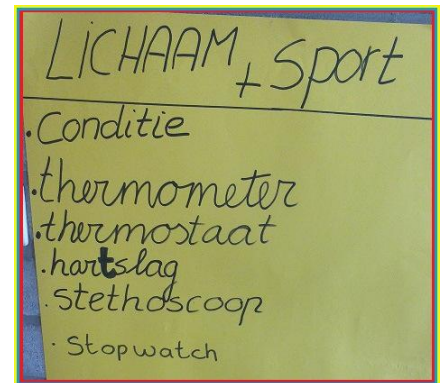 LICHAAM + Sport
. Conditie
. thermometer
. thermostaat
. hartslag
. stethoscoop
. Stopwatch